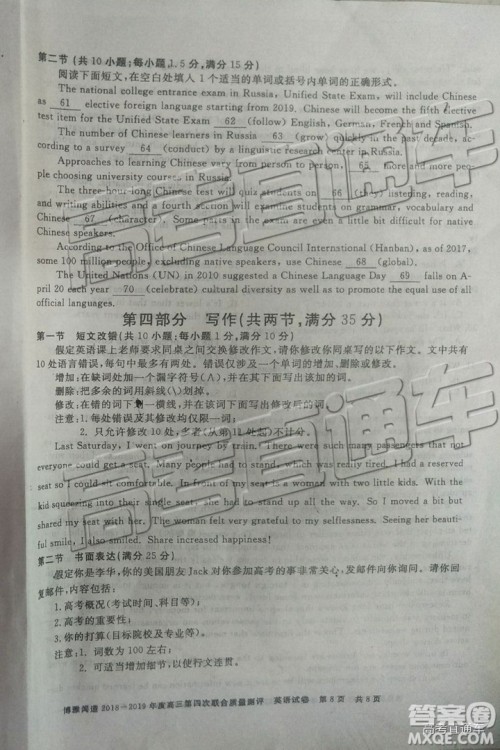 第二节 (共10小题;每小题1.5分,满分15分)
阅读下面短文,在空白处填入1个适当的单词或括号内单词的正确形式。
The national college entrance exam in Russia, Unified State Exam, will include Chinese
as 61 elective foreign language starting from 2019. Chinese will become the fifth elective
test item for the Unified State Exam 62 (follow) English, German, French and Spanish.
The number of Chinese learners in Russia 63 (grow) quickly in the past decade, ac-
cording to a survey 64 (conduct) by a linguistic research center in Russia.
Approaches to learning Chinese vary from person to person, 65 more and more peo-
ple choosing university courses in Russia.
The three-hour long Chinese test will quiz students on 66 (they) listening, reading,
and writing abilities and a fourth section will examine students on grammar, vocabulary and
Chinese 67 (character). Some parts are even a little bit difficult for native
Chinese speakers.
According to the Office of Chinese Language Council International (Hanban), as of 2017,
some 100 million people, excluding native speakers, can use Chinese 68 (global).
The United Nations (UN) in 2010 suggested a Chinese Language Day 69 falls on A-
pril 20 each year 70 (celebrate) cultural diversity as well as to promote the equal use of all
official languages.
第四部分 写作(共两节,满分35分)
第一节 短文改错(共10小题;每小题1分,满分10分)
假定英语课上老师要求同桌之间交换修改作文,请你修改你同桌写的以下作文。文中共有
10处语言错误,每句中最多有两处。错误仅涉及一个单词的增加、删除或修改。
增加:在缺词处加一个漏字符号(∧),并在其下面写出该加的词。
删除:把多余的词用斜线(\)划掉。
修改:在错的词下画一横线,并在该词下面写出修改后的词。
注意:1. 每处错误及其修改均仅限一词;
2. 只允许修改10处,多者(从第11处起)不计分。
Last Saturday, I went on journey by train. There were such many passengers that not
everyone could get a seat. Many people had to stand, which was really tired. I had a reserved
seat so I felt comfortable. In front of my seat is a women with two little kids. With the
kid squeezing into their single seat; she had to stand up all the way. So I moved a bit and
shared my seat. The woman felt very grateful to my selflessness. Seeing her beautiful
smile, I also smiled. Share increased happiness!
第二节 书面表达(满分25分)
假定你是李华,你的美国朋友Jack对你参加高考的事非常关心,发邮件向你询问。请你回
复邮件,内容包括:
1. 高考概况(考试时间、科目等);
2. 高考的重要性;
3. 你的打算(目标院校及专业等)。
注意:1. 词数100左右;
2. 可适当增加细节,以使行文连贯。
博雅闻道2018—2019年度高三第四次联合质量测评 英语试卷 第8页 共8页
高考直通车
高考直通车
高考直通车
答案圈
MXQE.COM